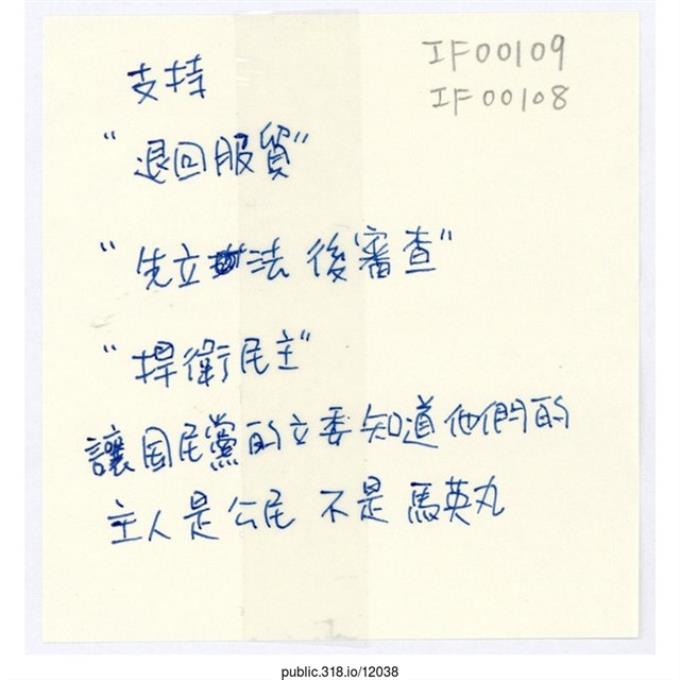 IF00109
IF00108
支持
“退回服貿”
“先立法 後審查”
“捍衛民主”
讓国民黨的立委知道他們的
主人是公民 不是馬英丸
public.318.io/12038